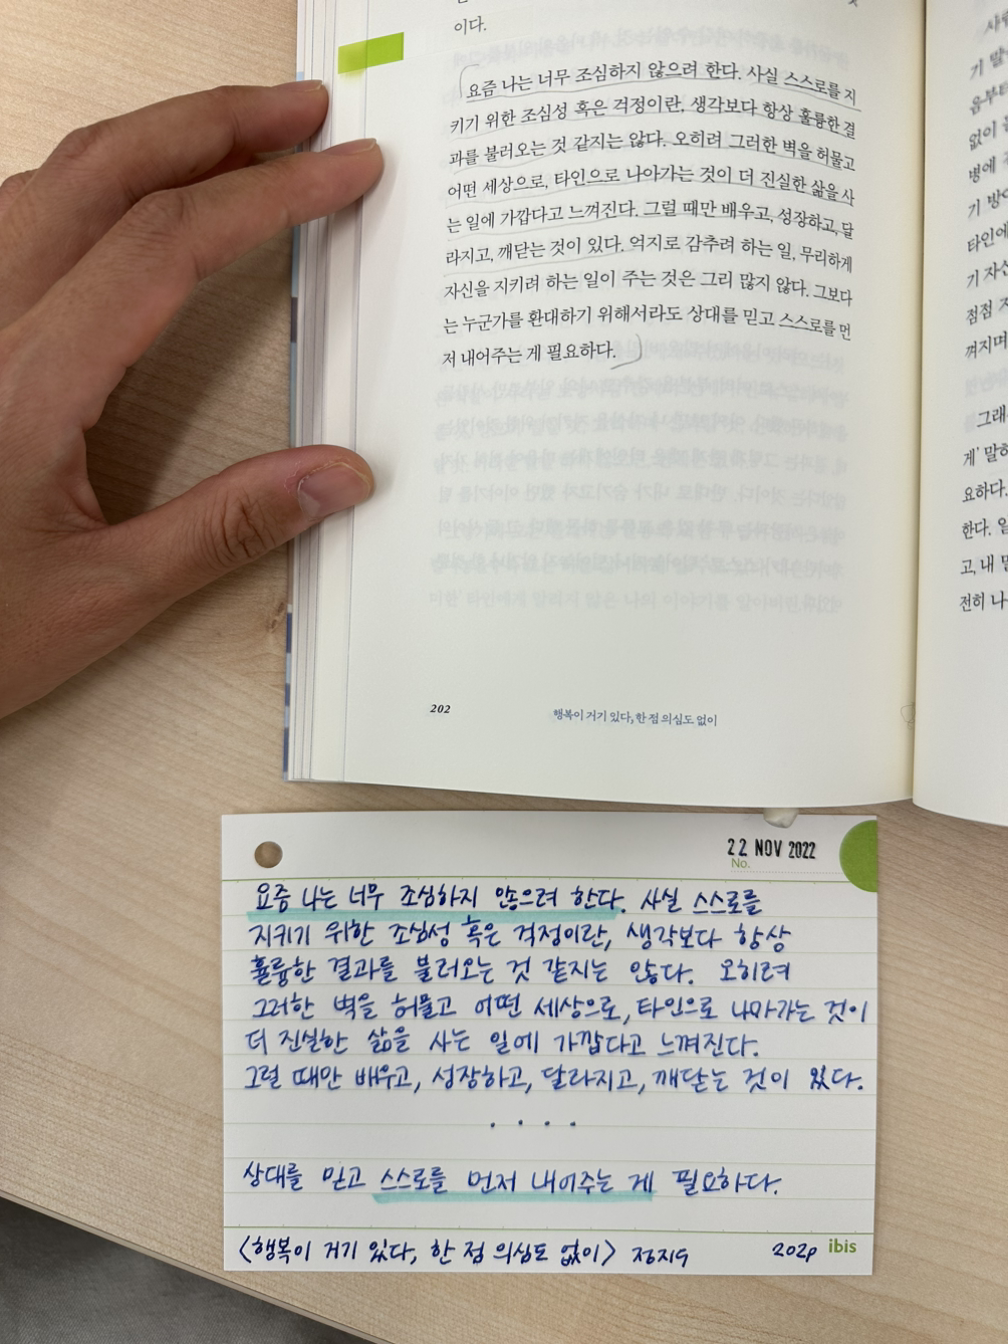 이다.
요즘 나는 너무 조심하지 않으려 한다. 사실 스스로를 지
키기 위한 조심성 혹은 걱정이란, 생각보다 항상 훌륭한 결
과를 불러오는 것 같지는 않다. 오히려 그러한 벽을 허물고
어떤 세상으로, 타인으로 나아가는 것이 더 진실한 삶을 사
는 일에 가깝다고 느껴진다. 그럴 때만 배우고, 성장하고, 달
라지고, 깨닫는 것이 있다. 억지로 감추려 하는 일, 무리하게
자신을 지키려 하는 일이 주는 것은 그리 많지 않다. 그보다
는 누군가를 환대하기 위해서라도 상대를 믿고 스스로를 먼
저 내어주는 게 필요하다.
202
행복이 거기 있다, 한 점 의심도 없이
기 말
음부터
없이
병에
기 방
타인에
기 자신
점점
껴지며
그래
게' 말
요하다.
한다. 일
고, 내 말
전히 나
22 NOV 2022
No.
요즘 나는 너무 조심하지 않으려 한다. 사실 스스로를
지키기 위한 조심성 혹은 걱정이란, 생각보다 항상
훌륭한 결과를 불러오는 것 같지는 않다. 오히려
그러한 벽을 허물고 어떤 세상으로, 타인으로 나아가는 것이
더 진실한 삶을 사는 일에 가깝다고 느껴진다.
그럴 때만 배우고, 성장하고, 달라지고, 깨닫는 것이 있다.
. . . .
상대를 믿고 스스로를 먼저 내어주는 게 필요하다.
<행복이 거기 있다, 한 점 의심도 없이> 정지우 202p
ibis